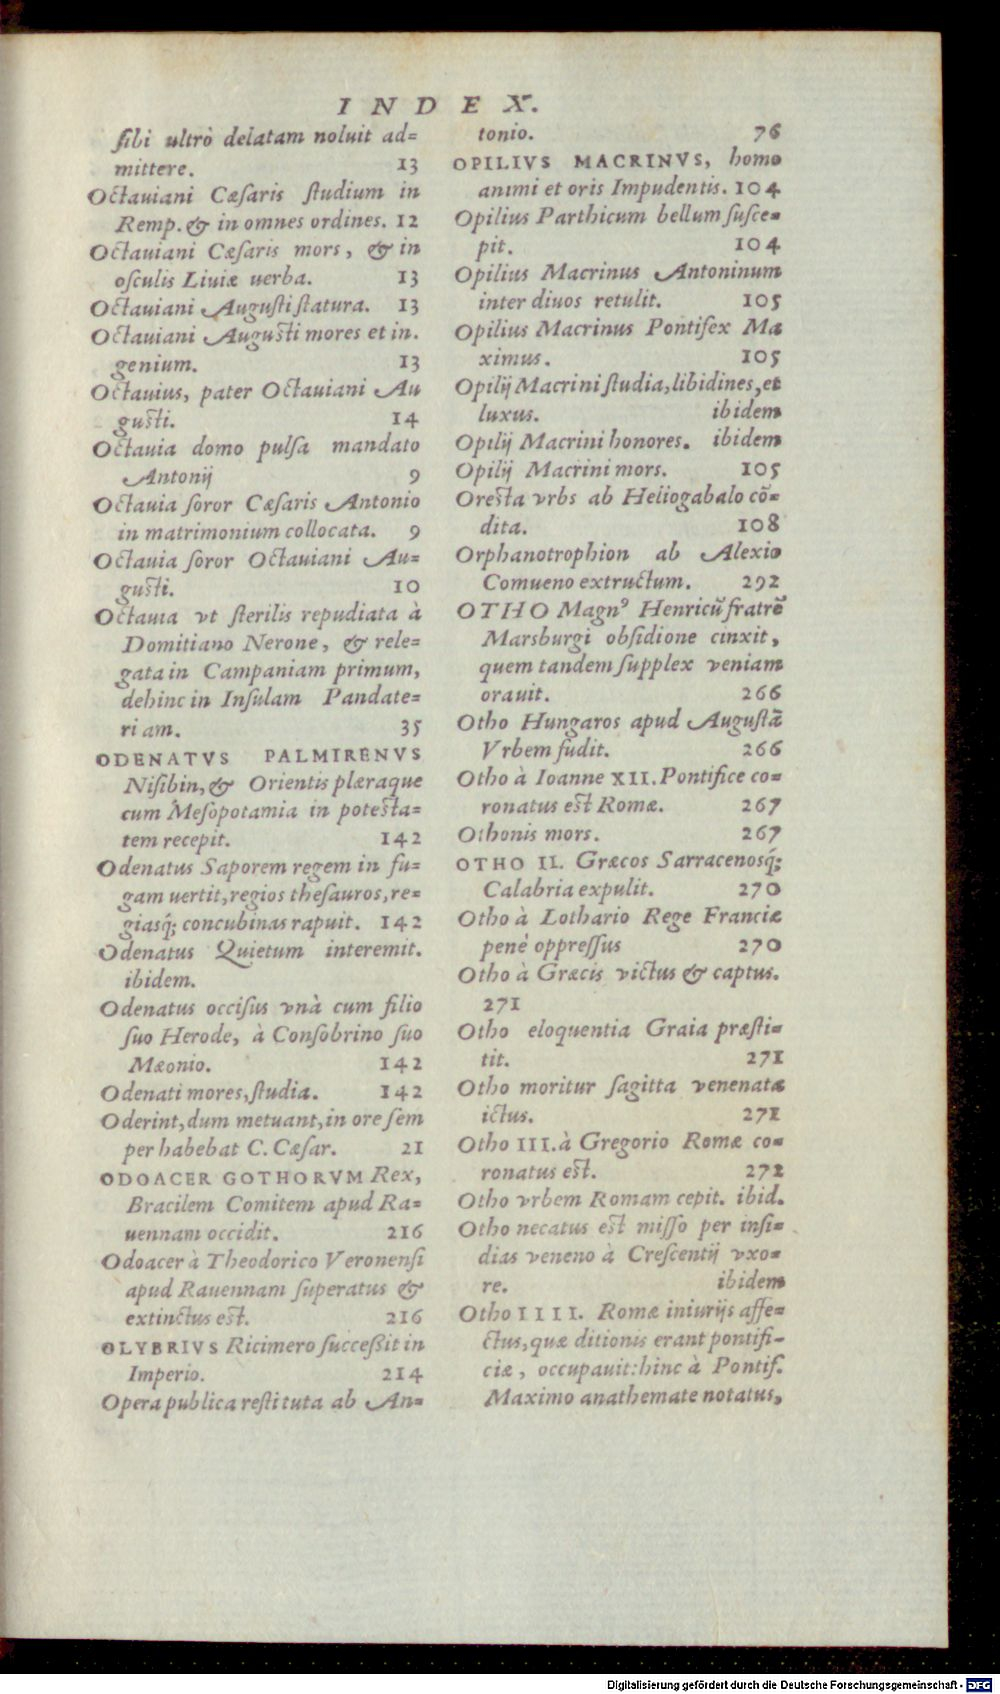 INDEX.
ſibi ultrò delatam noluit ad=
mittere. 13
Octauiani Cæſaris ſtudium in
Remp. & in omnes ordines. 12
Octauiani Cæſaris mors, & in
oſculis Liuiæ uerba. 13
Octauiani Auguſti ſtatura. 13
Octauiani Auguſti mores et in.
genium. 13
Octauius, pater Octauiani Au
guſti. 14
Octauia domo pulſa mandato
Antonij 9
Octauia ſoror Cæſaris Antonio
in matrimonium collocata. 9
Octauia ſoror Octauiani Au=
guſti. 10
Octauia vt ſterilis repudiata à
Domitiano Nerone, & rele=
gata in Campaniam primum,
dehinc in Inſulam Pandate=
riam. 35
ODENATVS PALMIRENVS
Niſibin, & Orientis pleraque
cum Meſopotamia in poteſta=
tem recepit. 142
Odenatus Saporem regem in fu=
gam uertit, regios theſauros, re=
giasq́; concubinas rapuit. 142
Odenatus Quietum interemit.
ibidem.
Odenatus occiſus vnà cum filio
ſuo Herode, à Conſobrino ſuo
Mæonio. 142
Odenati mores, ſtudia. 142
Oderint, dum metuant, in ore ſem
per habebat C. Cæſar. 21
ODOACER GOTHORVM Rex,
Bracilem Comitem apud Ra=
uennam occidit. 216
Odoacer à Theodorico Veronenſi
apud Rauennam ſuperatus &
extinctus eſt. 216
OLYBRIVS Ricimero ſucceßit in
Imperio. 214
Opera publica reſtituta ab An=
tonio. 76
OPILIVS MACRINVS, homo
animi et oris Impudentis. 104
Opilius Parthicum bellum ſuſce=
pit. 104
Opilius Macrinus Antoninum
inter diuos retulit. 105
Opilius Macrinus Pontifex Ma
ximus. 105
Opilij Macrini ſtudia, libidines, et
luxus. ibidem
Opilij Macrini honores. ibidem
Opilij Macrini mors. 105
Oreſta vrbs ab Heliogabalo cō=
dita. 108
Orphanotrophion ab Alexio
Comueno extructum. 292
OTHO Magnꝰ Henricū fratrē
Marsburgi obſidione cinxit,
quem tandem ſupplex veniam
orauit. 266
Otho Hungaros apud Auguſtā
Vrbem fudit. 266
Otho à Ioanne XII. Pontifice co=
ronatus eſt Romæ. 267
Othonis mors. 267
OTHO II. Græcos Sarracenosq́;
Calabria expulit. 270
Otho à Lothario Rege Franciæ
penè oppreſſus 270
Otho à Græcis victus & captus.
271
Otho eloquentia Graia præſti=
tit. 271
Otho moritur ſagitta venenatæ
ictus. 271
Otho III. à Gregorio Romæ co=
ronatus eſt. 272
Otho vrbem Romam cepit. ibid.
Otho necatus eſt miſſo per inſi=
dias veneno à Creſcentij vxo=
re. ibidem
Otho IIII. Romæ iniurijs affe=
ctus, quæ ditionis erant pontifi-
ciæ, occupauit: hinc à Pontif.
Maximo anathemate notatus,
Digitalisierung gefördert durch die Deutsche Forschungsgemeinschaft - DFG